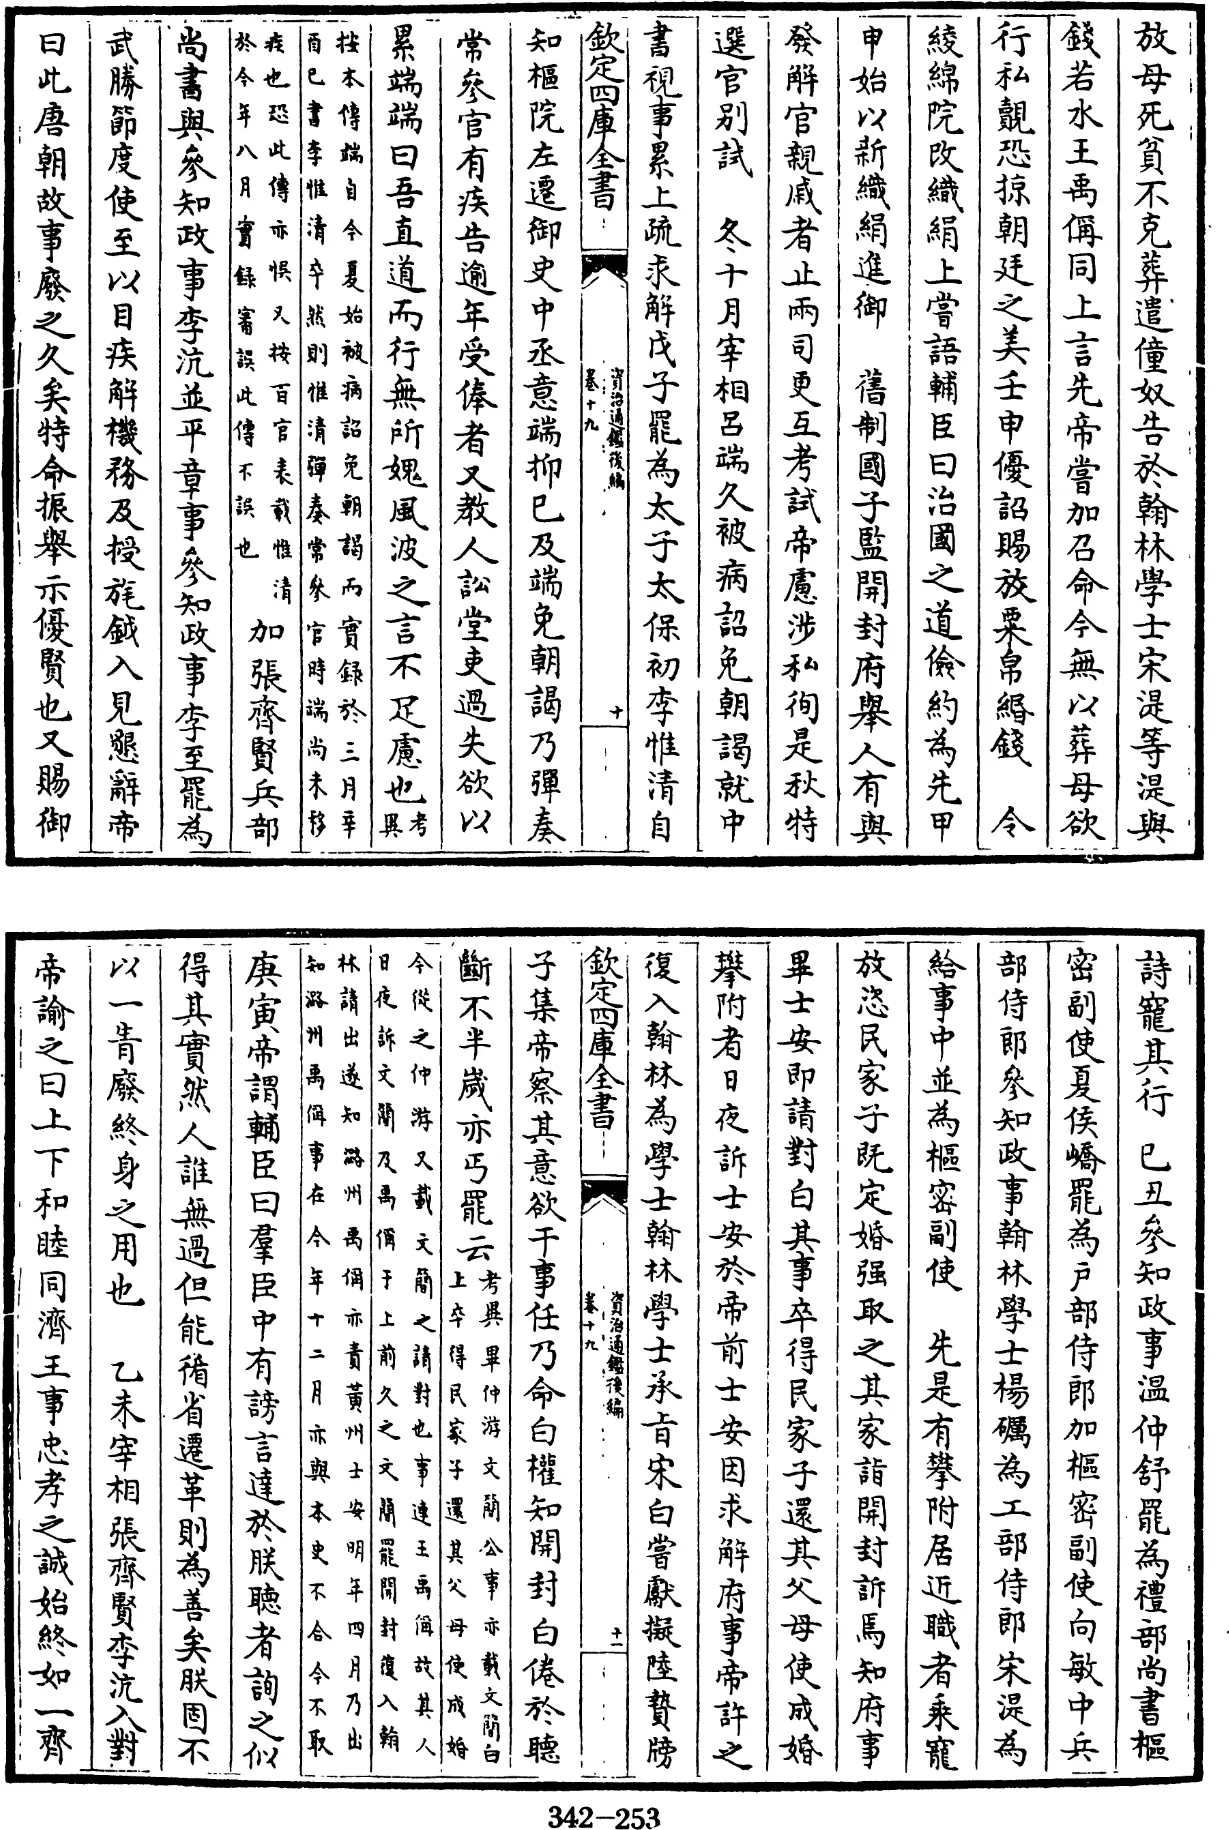 放母死貧不克葬遣僮奴告於翰林學士宋湜等湜與
錢若水王禹偁同上言先帝嘗加召命今無以葬母欲
行私覿恐掠朝廷之美壬申優詔賜放粟帛緡錢　令
綾綿院改織絹上嘗語輔臣曰治國之道儉約為先甲
申始以新織絹進御　舊制國子監開封府舉人有與
發解官親戚者止兩司更互考試帝慮涉私徇是秋特
選官别試　冬十月宰相呂端久被病詔免朝謁就中
書視事累上疏求解戊子罷為太子太保初李惟清自
欽定四庫全書
資治通鑑後編
卷十九
十
知樞院左遷御史中丞意端抑已及端免朝謁乃彈奏
常參官有疾告逾年受俸者又教人訟堂吏過失欲以
累端端曰吾直道而行無所媿風波之言不足慮也考異
按本傳端自今夏始被病詔免朝謁而實録於三月辛
酉已書李惟清卒然則惟清彈奏常參官時端尚未移
疾也恐此傳亦悞又按百官表載惟清
於今年八月實録甯誤此傳不誤也
加張齊賢兵部
尚書與參知政事李沆並平章事參知政事李至罷為
武勝節度使至以目疾解機務及授旄鉞入見懇辭帝
曰此唐朝故事廢之久矣特命振舉示優賢也又賜御
詩寵其行　已丑參知政事溫仲舒罷為禮部尚書樞
密副使夏侯嶠罷為户部侍郎加樞密副使向敏中兵
部侍郎參知政事翰林學士楊礪為工部侍郎宋湜為
給事中並為樞密副使　先是有攀附居近職者乘寵
放恣民家子既定婚强取之其家詣開封訴焉知府事
畢士安即請對白其事卒得民家子還其父母使成婚
攀附者日夜訴士安於帝前士安因求解府事帝許之
復入翰林為學士翰林學士承㫖宋白嘗獻擬陸贄牓
欽定四庫全書
資治通鑑後編
卷十九
十一
子集帝察其意欲干事任乃命白權知開封白倦於聽
斷不半嵗亦丐罷云
考異畢仲游文簡公事亦載文簡白
上卒得民家子還其父母使成婚
今從之仲游又載文簡之請對也事連王禹偁故其人
日夜訴文簡及禹偁于上前久之文簡罷開封復入翰
林請出遂知潞州禹偁亦責黃州士安明年四月乃出
知潞州禹偁事在今年十二月亦與本史不合今不取
庚寅帝謂輔臣曰羣臣中有謗言達於朕聽者詢之似
得其實然人誰無過但能循省遷革則為善矣朕固不
以一眚廢終身之用也　乙未宰相張齊賢李沆入對
帝諭之曰上下和睦同濟王事忠孝之誠始終如一齊
342–253